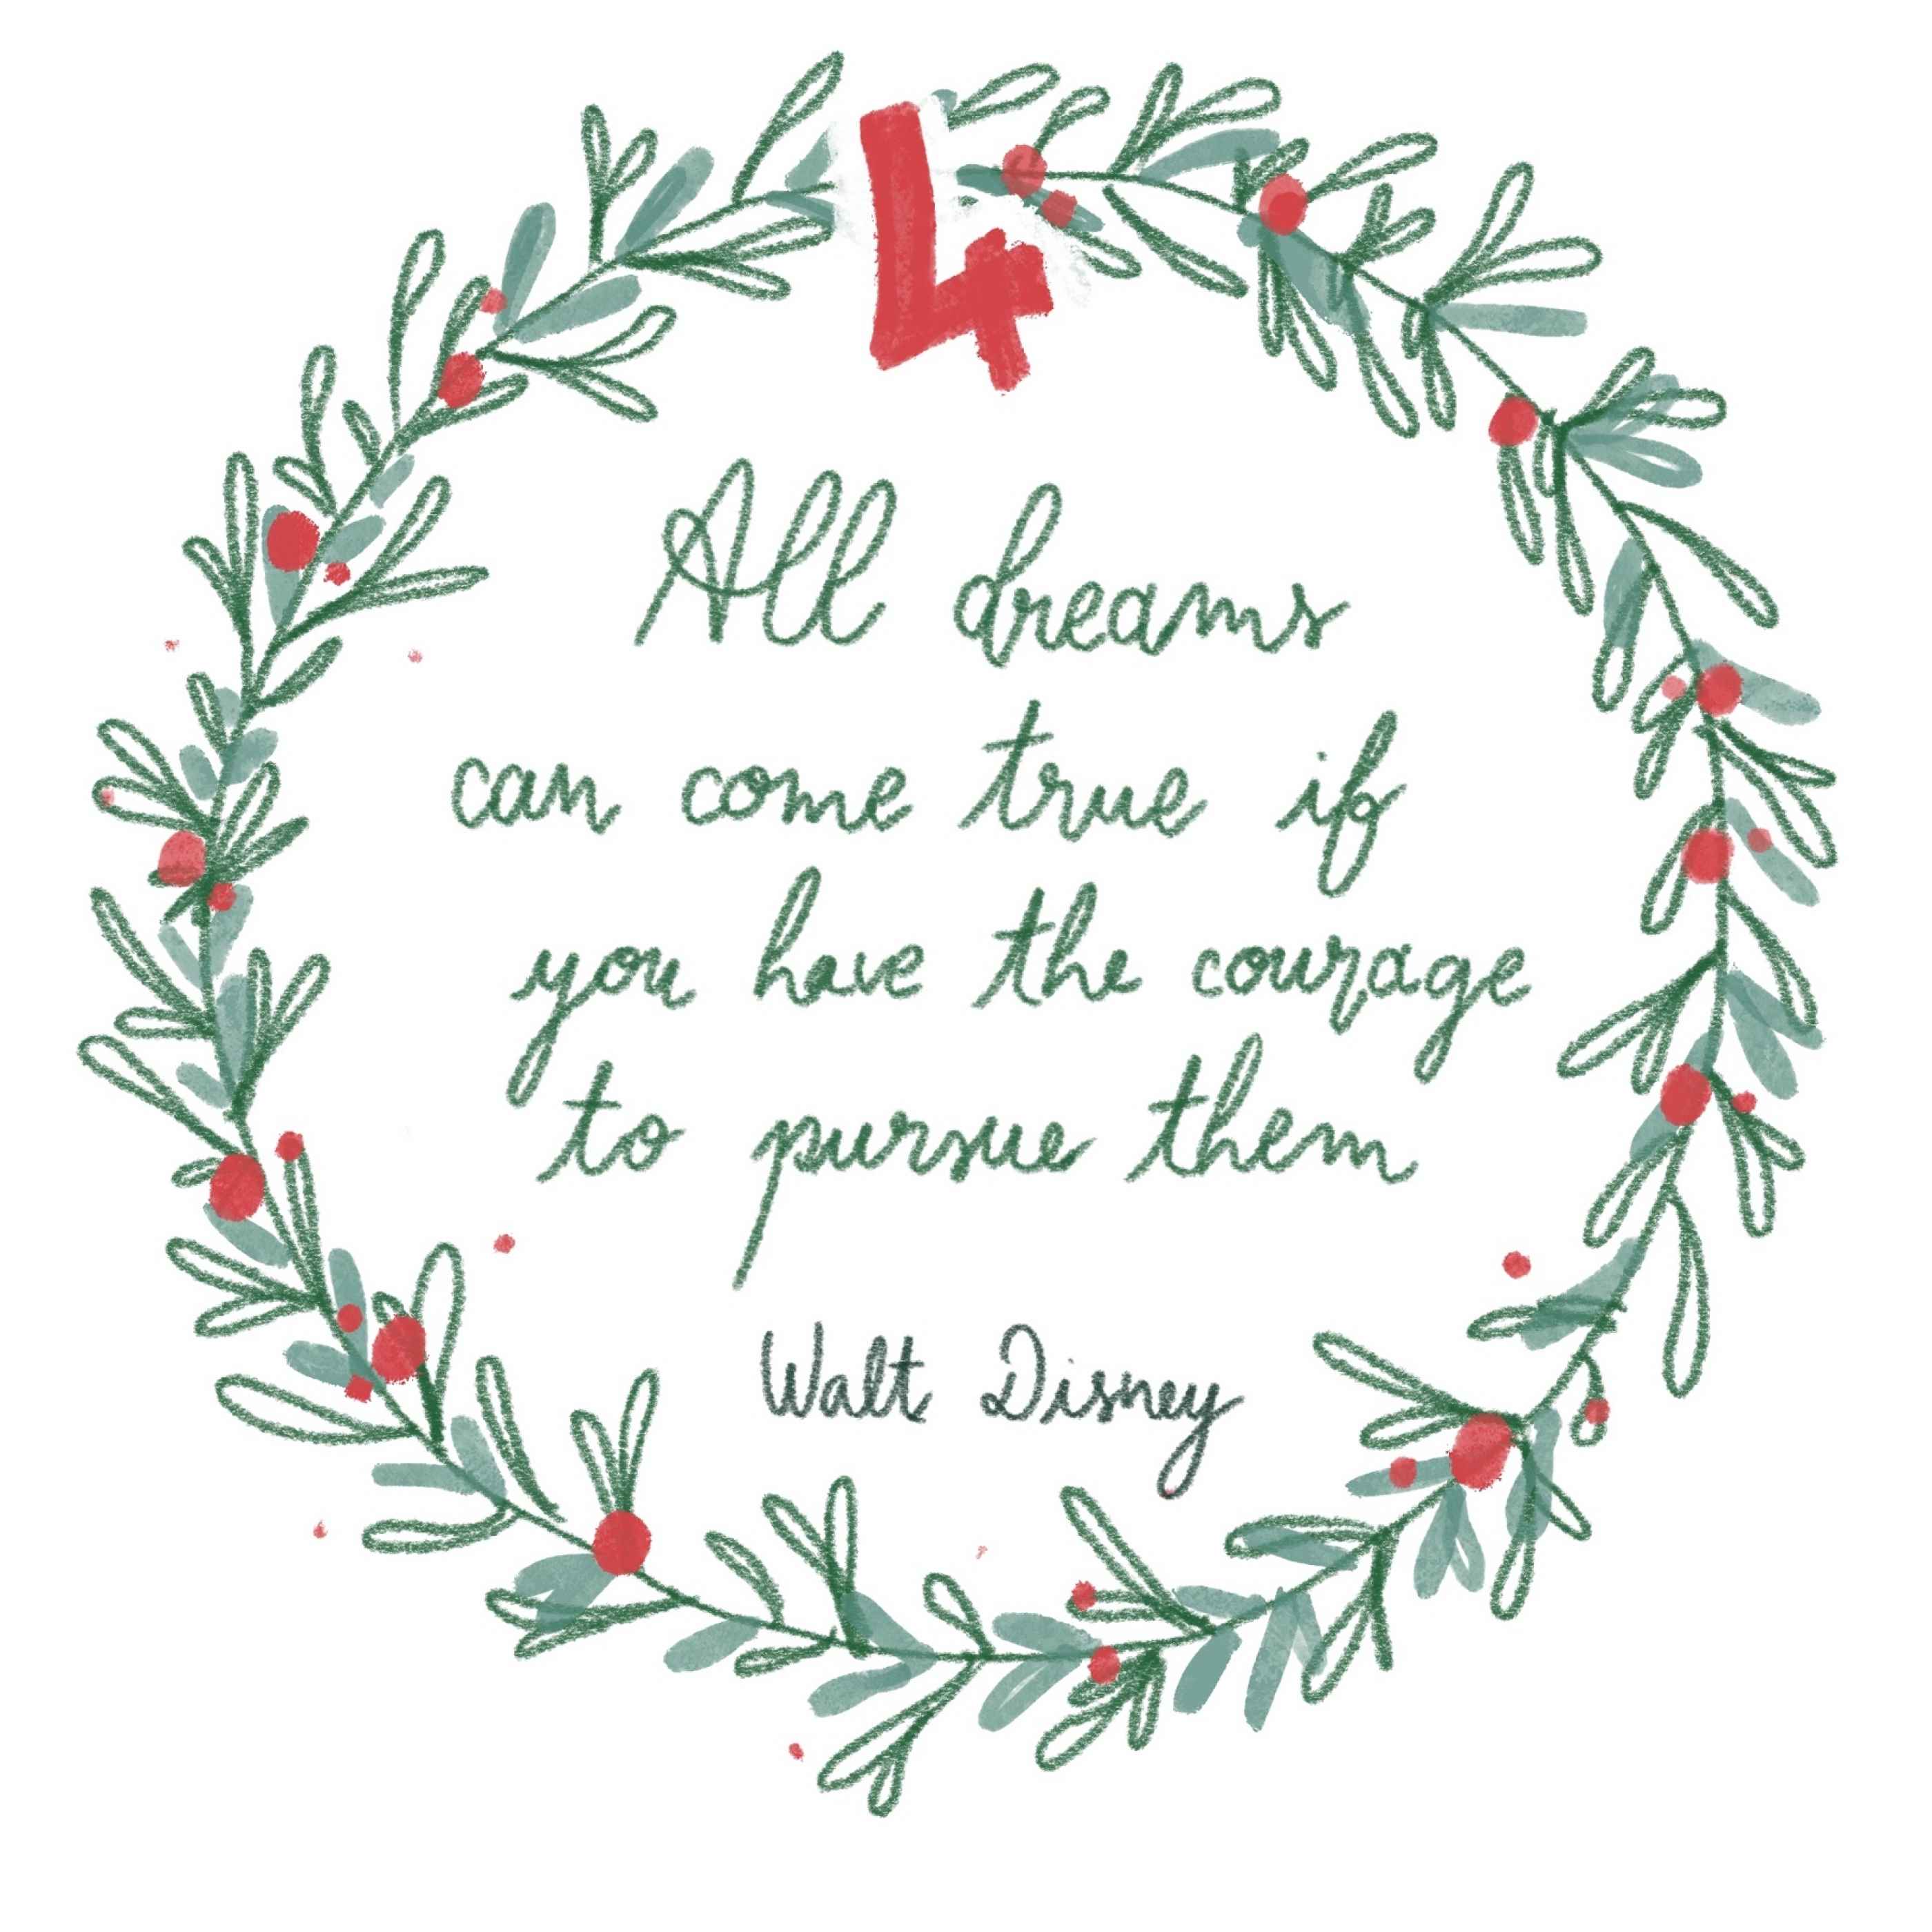 4
All dreams
can come true if
you have the courage
to pursue them
Walt Disney